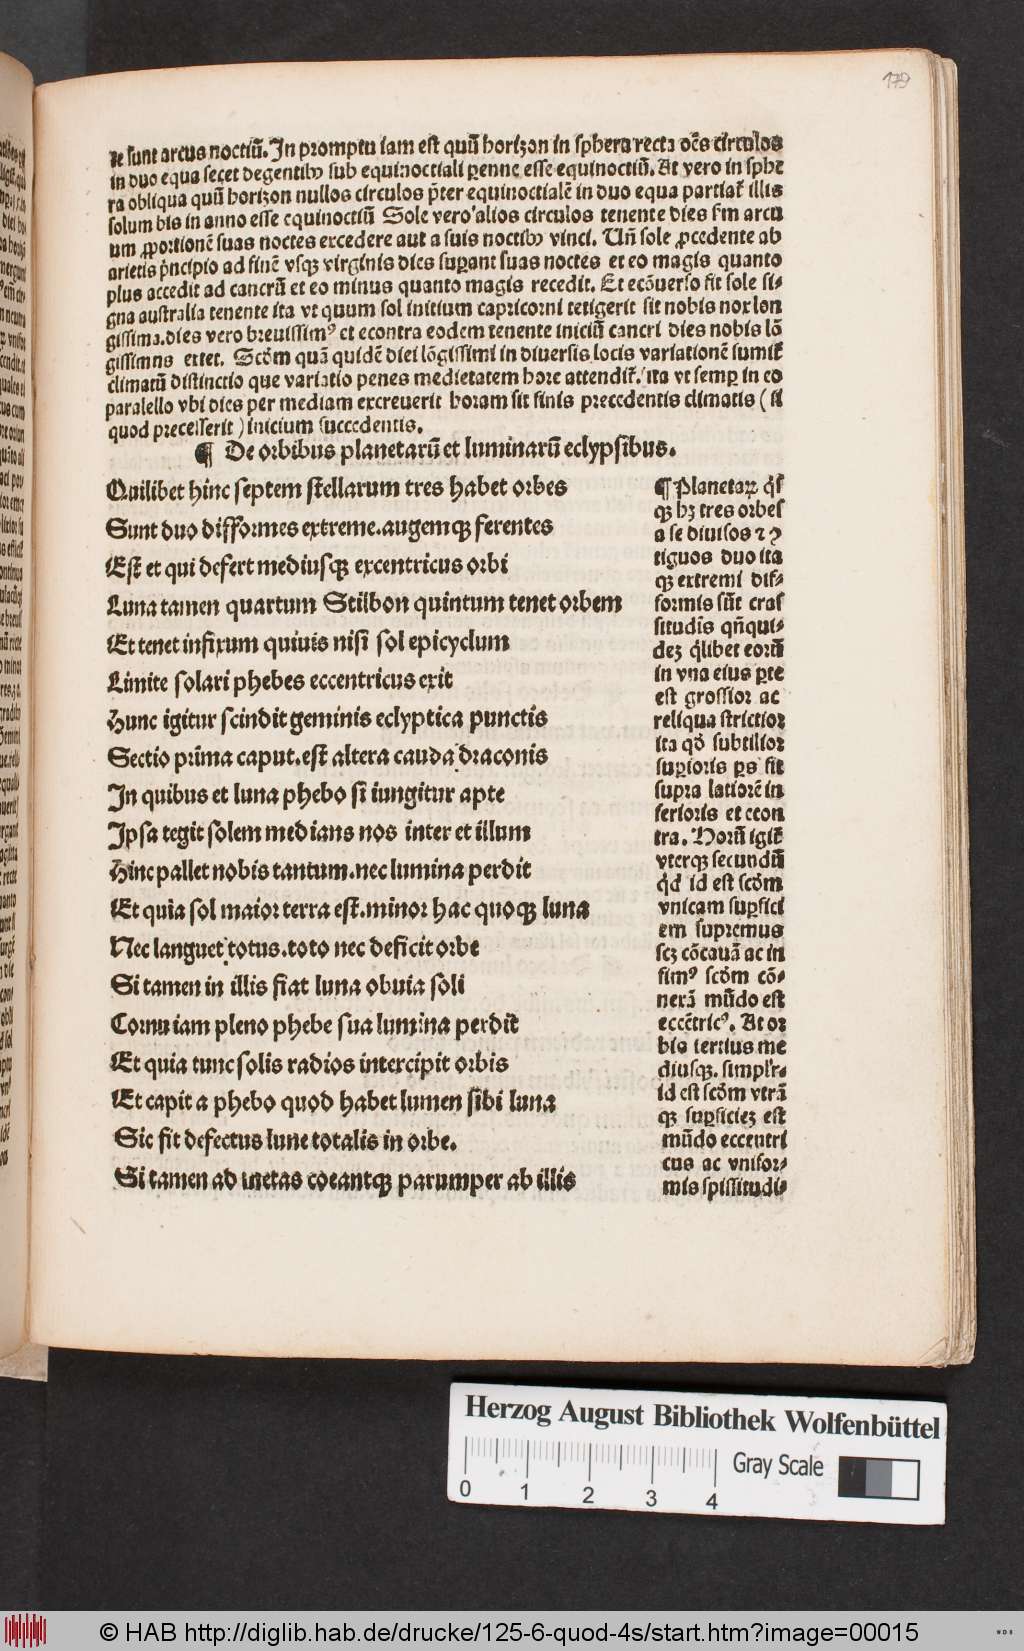 179
re sunt arcus noctiū. In promptu iam est quū horizon in sphera recta oēs circulos
in duo equa secet degentibꝰ sub equinoctiali perenne esse equinoctiū. At vero in sphe
ra obliqua quū horizon nullos circulos p̄ter equinoctialē in duo equa partiat̄ illis
solum bis in anno esse equinoctiū Sole vero alios circulos tenente dies fm arcu
um ꝓportionē suas noctes excedere aut a suis noctibꝰ vinci. Uñ sole ꝓcedente ab
arietis p̄ncipio ad finē vsqꝫ virginis dies suꝑant suas noctes et eo magis quanto
plus accedit ad cancrū et eo minus quanto magis recedit. Et ecōuerso fit sole si⸗
gna australia tenente ita vt quum sol initium capricorni tetigerit sit nobis nox lon
gissima.dies vero breuissimꝰ et econtra eodem tenente iniciū cancri dies nobis lō
gissimus extet. Scđm quā quidē diei lōgissimi in diuersis locis variationē sumit̄
climatū distinctio que variatio penes medietatem hore attendit̄. ita vt sempꝑ in eo
paralello vbi dies per mediam excreuerit horam sit finis precedentis climatis (si
quod precesserit) inicium succedentis.
¶ De orbibus planetarū et luminarū eclypsibus.
Quilibet hinc septem stellarum tres habet orbes
Sunt duo difformes extreme.augemqꝫ ferentes
Est et qui defert mediusqꝫ excentricus orbi
Luna tamen quartum Stilbon quintum tenet orbem
Et tenet infixum quiuis nisi sol epicyclum
Limite solari phebes eccentricus exit
Hunc igitur scindit geminis eclyptica punctis
Sectio prima caput.est altera cauda draconis
In quibus et luna phebo si iungitur apte
Ipsa tegit solem medians nos inter et illum
Hinc pallet nobis tantum.nec lumina perdit
Et quia sol maior terra est.minor hac quoqꝫ luna
Nec languet totus.toto nec deficit orbe
Si tamen in illis fiat luna obuia soli
Cornu iam pleno phebe sua lumina perdit
Et quia tunc solis radios intercipit orbis
Et capit a phebo quod habet lumen sibi luna
Sic fit defectus lune totalis in orbe.
Si tamen ad metas coeantqꝫ parumper ab illis
¶ Planetaꝝ q̄s
qꝫ hꝫ tres orbes
a se diuisos ⁊ ꝯ
tiguos duo ita
qꝫ extremi dif⸗
formis sūt cras
situdīs qñqui⸗
deꝫ q̄libet eorū
in vna eius p̱te
est grossior ac
reliqua strictior
ita qđ subtilior
suꝑioris ꝑs sit
supra latiorē in
ferioris et econ
tra. Horū igit̄
vterqꝫ secundū
qđ id est scđm
vnicam suꝑfici
em supremus
scꝫ cōcauā ac in
fimꝰ scđm cō⸗
nexā mūdo est
eccētricꝰ. At or
bis tertius me
diusqꝫ. simpl'r⸗
id est scđm vtrā
qꝫ suꝑficieꝫ est
mūdo eccentri
cus ac vnifor⸗
mis spissitudi⸗
Herzog August Bibliothek Wolfenbüttel
Gray Scale
0 1 2 3 4
© HAB http://diglib.hab.de/drucke/125-6-quod-4s/start.htm?image=00015